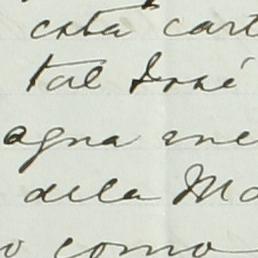 esta cart
tal José
agna me
dela Ma
o como